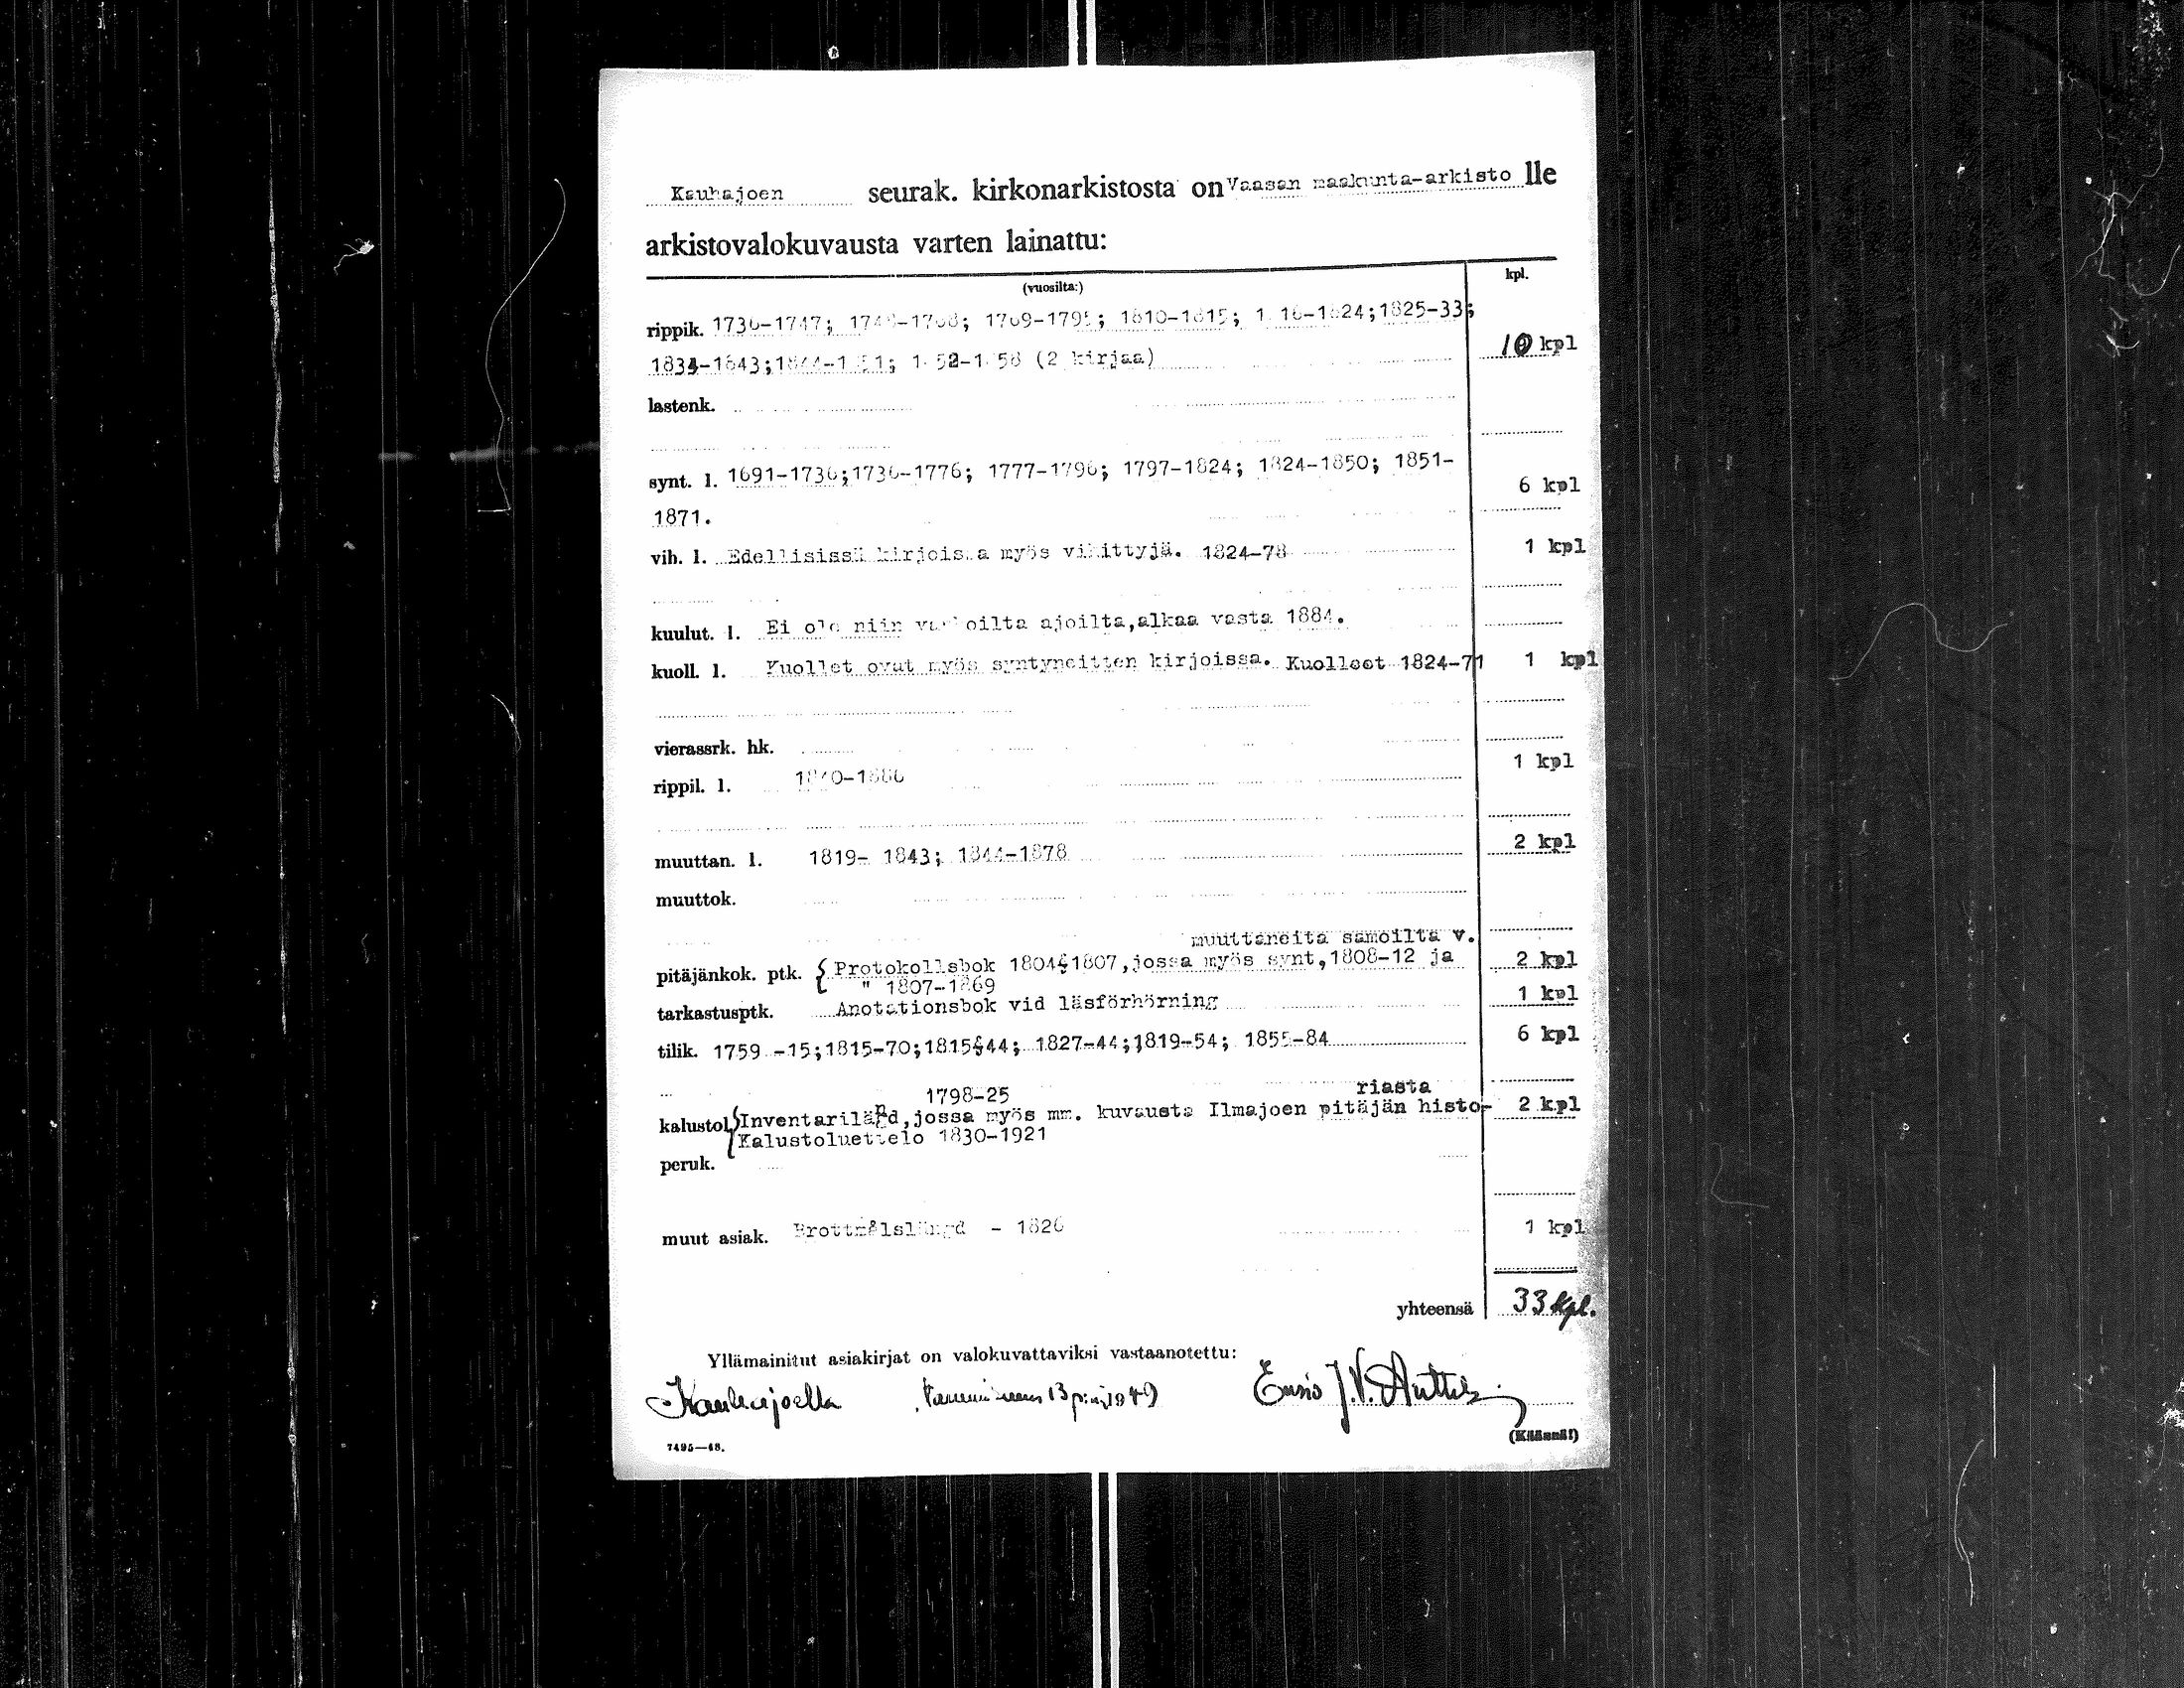 Kauhajoen seurak. kirkonarkistosta on Vaasan maakunta-arkisto lle
arkistovalokuvausta varten lainattu:
(vuosilta:) kpl.
rippik. 1736-1747; 1748-1768; 1769-1795; 1810-1815; 1816-1824;1825-33;
1834-1843;1844-1851; 1852-1858 (2 kirjaa) 10 kpl
lastenk.
synt. l. 1691-1736;1736-1776; 1777-1796; 1797-1824; 1824-1850; 1851-
1871. 6 kpl
vih. l. Edellisissä kirjoissa myös vihittyjä. 1824-78 1 kpl
kuulut. l. Ei ole niin varhoilta ajoilta,alkaa vasta 1884.
kuoll. l. Kuollet ovat myös syntyneitten kirjoissa. Kuolleet 1824-71 1 kpl
vierassrk. hk.
rippil. l. 1840-1886 1 kpl
muuttan. l. 1819- 1843; 1844-1878 2 kpl
muuttok.
muuttaneita samoilta v.
pitäjänkok. ptk. Protokollsbok 1804-1807,jossa myös synt,1808-12 ja 2 kpl
" 1807-1869
tarkastusptk. Anotationsbok vid läsförhörning 1 kpl
tilik. 1759 -15;1815-70;1815-44; 1827-44;1819-54; 1855-84 6 kpl
1798-25 riasta
kalustol. Inventariländ,jossa myös mm. kuvausta Ilmajoen pitäjän histo- 2 kpl
Kalustoluettelo 1830-1921
peruk.
muut asiak. Brottmålslängd - 1826 1 kpl
yhteensä 33 kpl.
Yllämainitut asiakirjat on valokuvattaviksi vastaanotettu:
Kauhajoella, 13 p:nä 1949 Ensio J.V.
7495—48. (Käännä!)